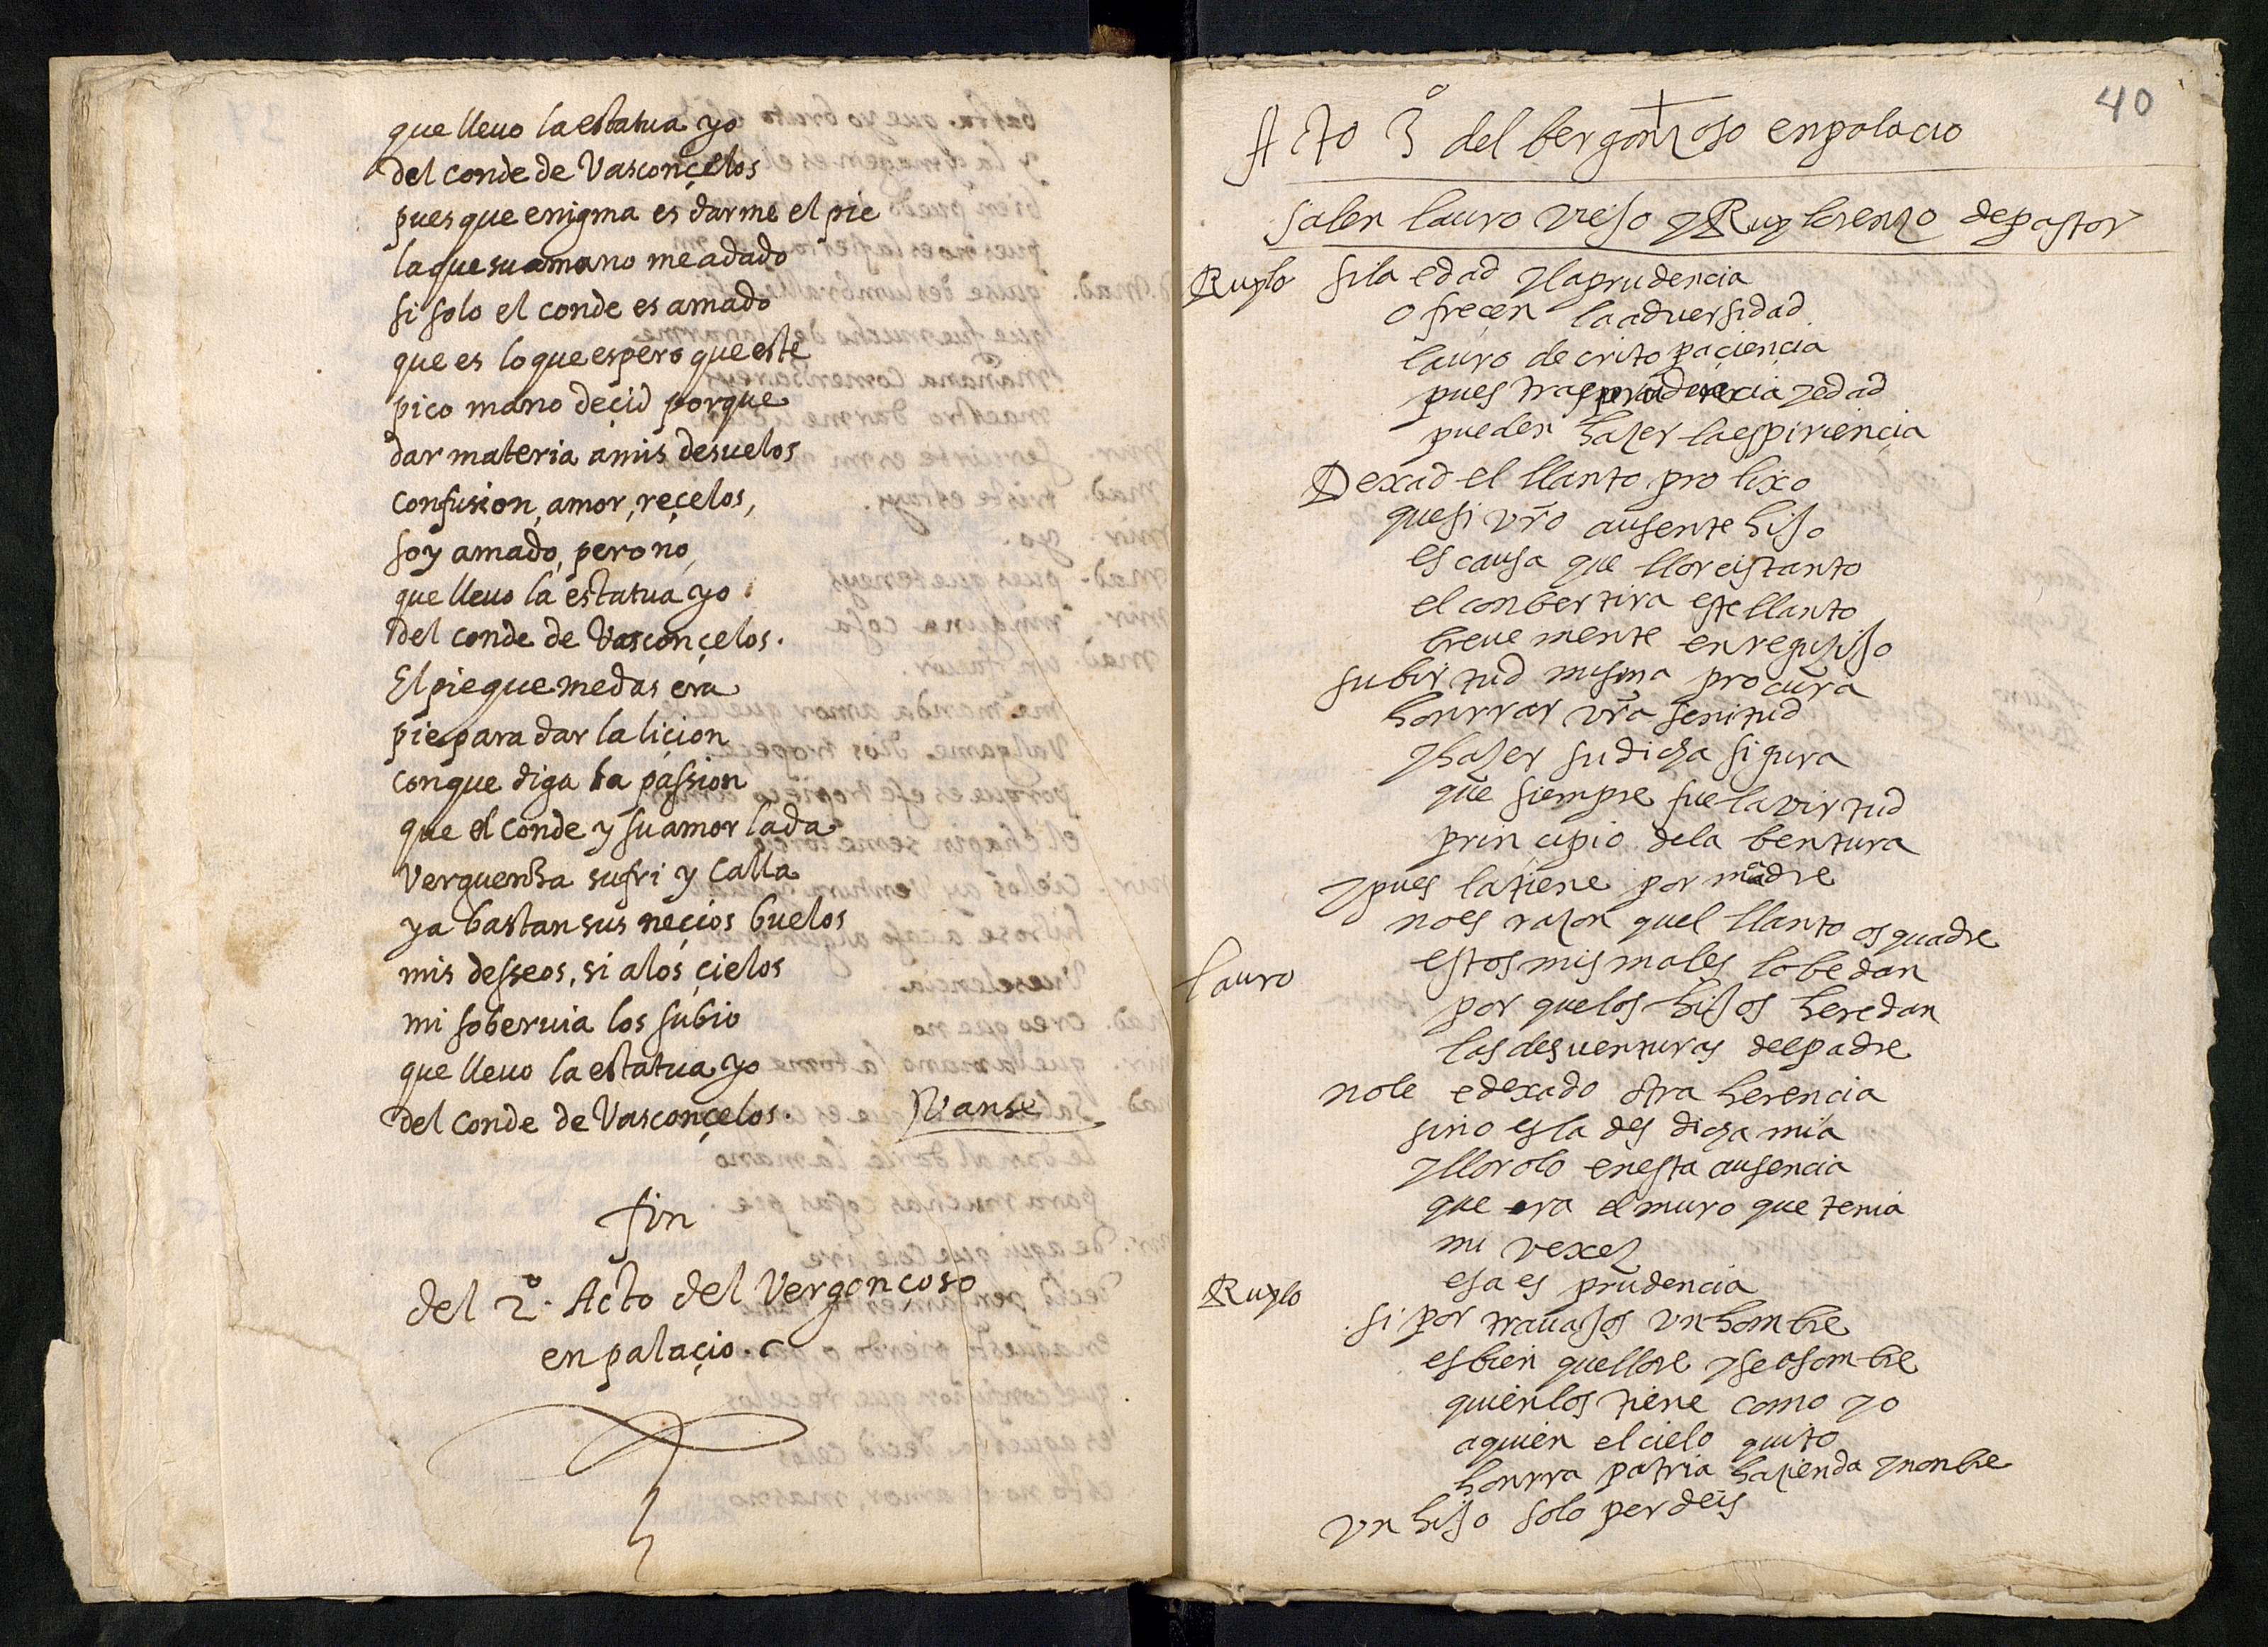 que lleuo la estatua yo
del conde de Vasconçelos
pues que enigma es darme el pie
la que su mano me a dado
si solo el conde es amado
que es lo que espero que este
pico mano deçid porque
dar materia a mis desuelos
confusion, amor, reçelos,
soy amado, pero no,
que lleuo la estatua yo
del conde de Vasconçelos.
El pie que me das era
pie para dar la liçion
con que diga la passion
que el conde y su amor lada
Verguenza sufri y Calla
ya bastan sus neçios buelos
mis desseos, si a los çielos
mi soberuia los subio
que lleuo la estatua yo
del Conde de Vasconçelos. Vanse
fin
del 2º. Acto del Vergonçoso
en palaçio.
40
Ato 3º del bergonzoso en palacio
salen lauro viejo y Ruy lorenzo de pastor
Ruylo si la edad y la prudencia
ofreçen la aduersidad
lauro de crito paçiençia
pues tras prudencia y edad
pueden hazer la espiriençia
Dexad el llanto prolixo
que si vrõ ausente hijo
es causa que lloreis tanto
el conbertira este llanto
breuemente en regusijo
su birtud misma procura
honrrar vrã senitud
y hazer su dicha sigura
que siempre fue la virtud
principio de la bentura
y pues la tiene por madre
no es razon quel llanto os quadre
lauro estos mis males lo bedan
por que los hijos heredan
las desuenturas deel padre
no le e dexado otra herencia
sino es la desdicha mia
y llorolo en esta ausencia
que era el muro que tenia
mi vexez
Ruylo esa es prudencia
si por trauajos vn hombre
es bien que llore y se asombre
quien los tiene como yo
a quien el cielo quito
honrra patria hazienda y nonbre
vn hijo solo perdeis